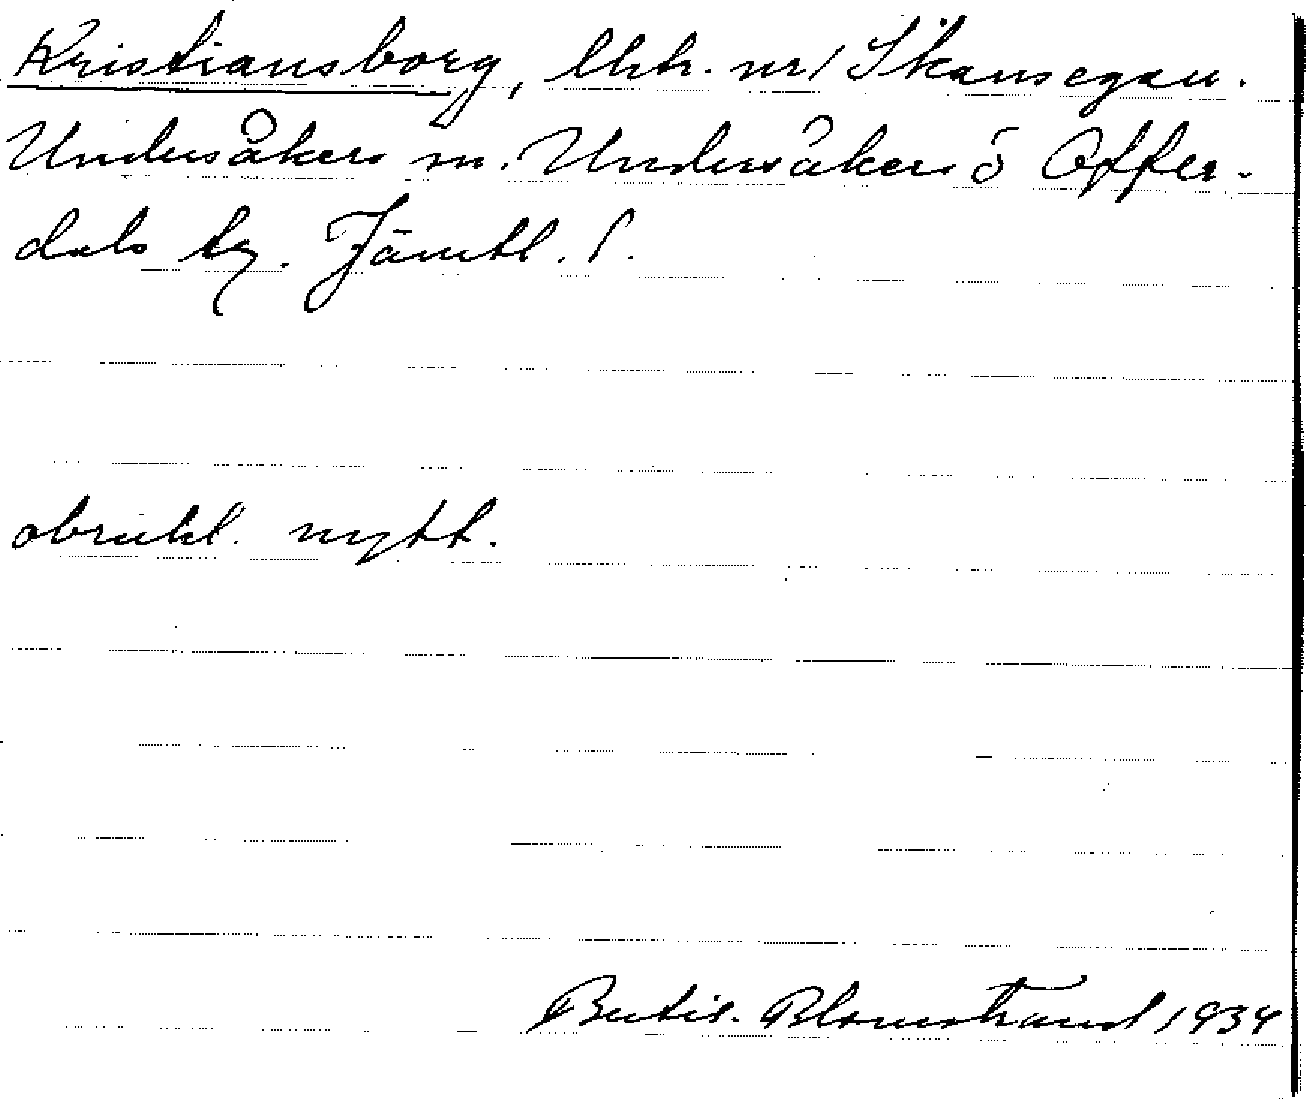 Kristiansborg, lht. nr 1 Skansegau.
Undersåkers sn. Undersåkers o Offer-
dals tg. Jämtl. l.
obrukl. nytt.
Bertil. Blomstrand 1934